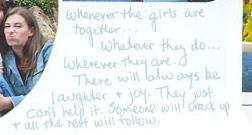 Whenever the girls are
together...
Whatever they do...
Wherever they are...
There will always be
laughter & joy. They just
can't help it. Someone will crack up
& all the rest will follow.